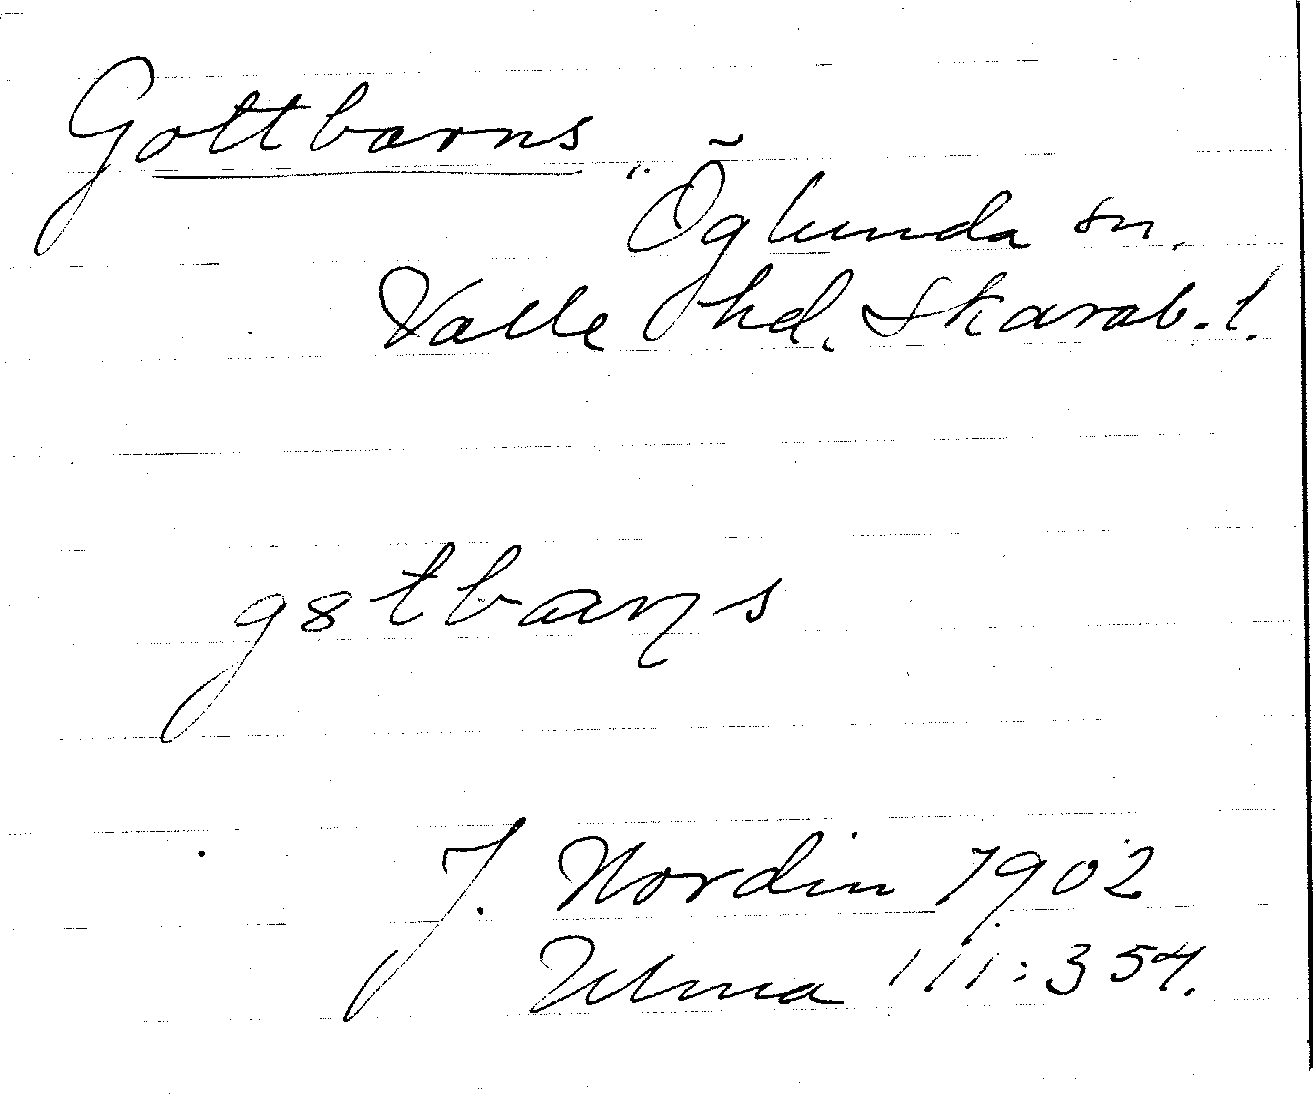 Gottbarns
Öglunda sn.
Valle hd, Skarab. l.
g8tbaɳs
J. Nordin 1902
Ulma 111:354.